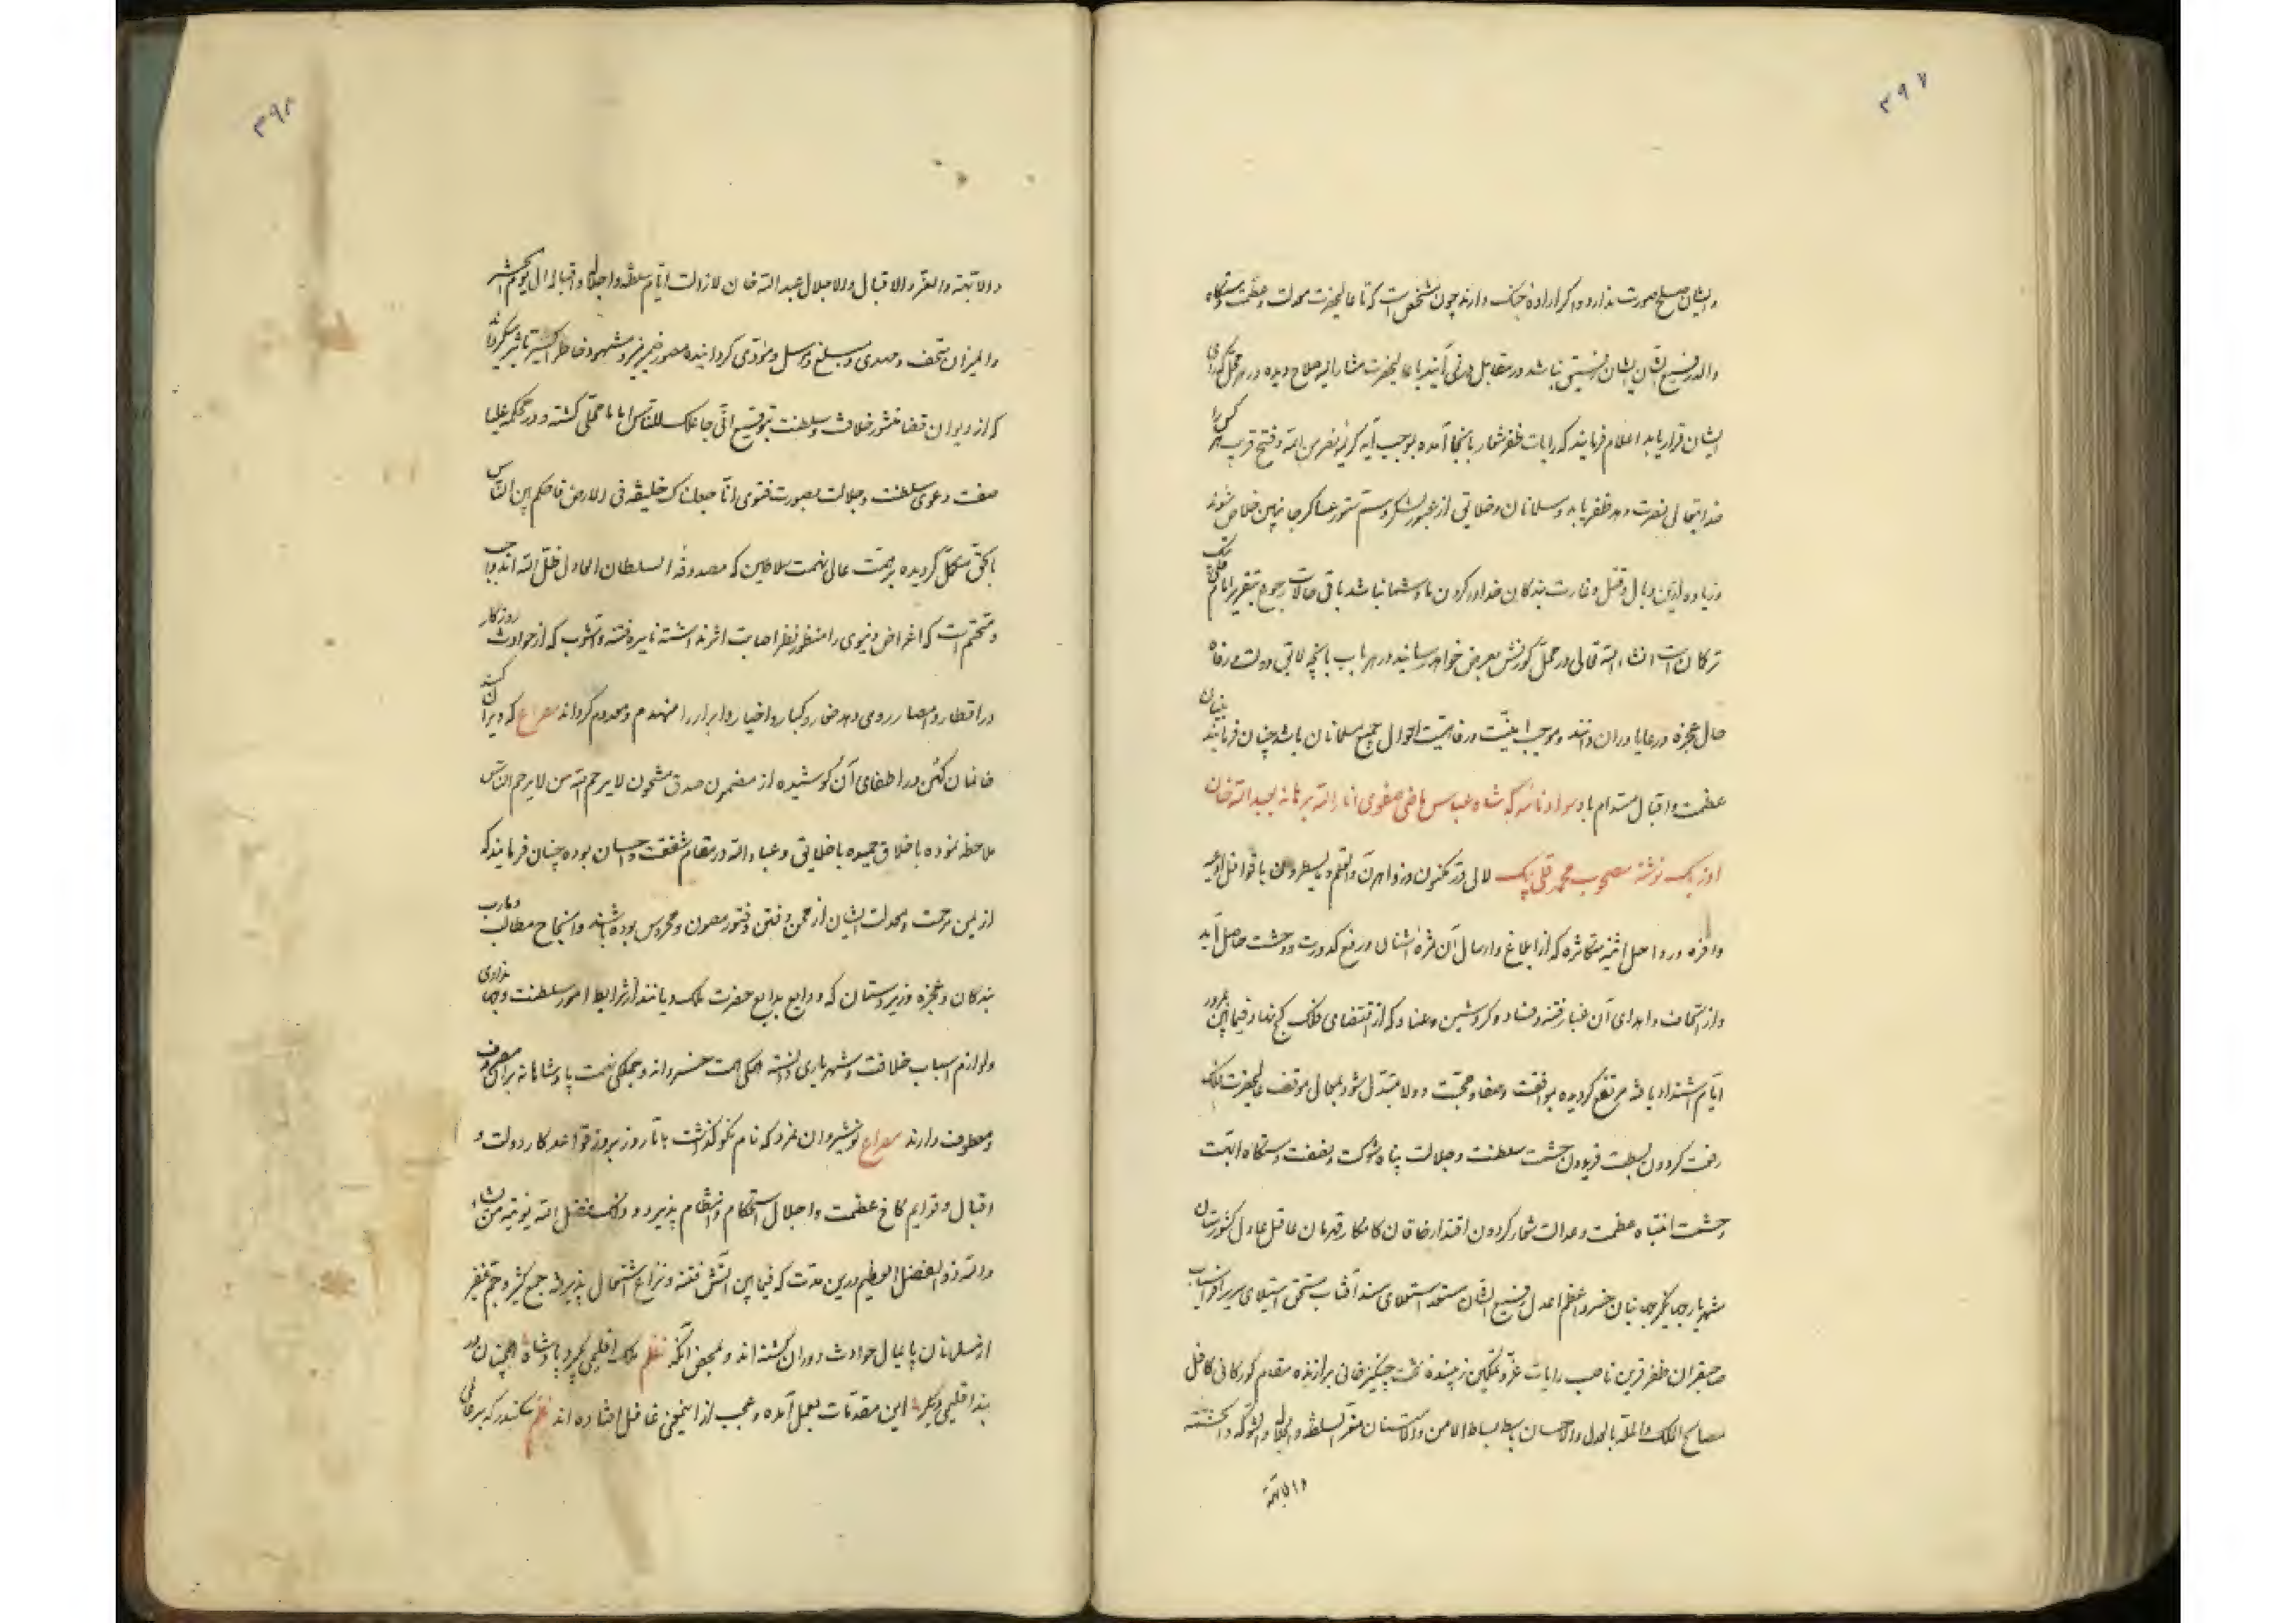 ۳۹۷
و ایشان صلح صورت ندارد و اگر اراده جنک دارند چون مشخص است که تا عالیحضرت معدلت و عظمت دستگاه
والد رفیع الشان ایشان نیستی نباشد در مقابل نمی آیند با عالیحضرت مشار الیه صلاح دیده در هر محل که رای
ایشان قرار یابد اعلام فرمایند که رایات ظفر شعار بانجا آمده بموجب آیه کریمه نصر من الله و فتح قریب هر کس را
خدایتعالی نصرت دهد ظفر یابد و مسلمانان و خلایق از عبور لشکر و ستم ستور عساکر جانبین خلاص شوند
و زیاده ازین وبال و قتل و غارت بندگان خدا در گردن ما و شما نباشد باقی حالات رجوع بتقریر
ترکان است انشاء الله تعالی در محل کورنش بعرض خواهد رسانید در هر باب بانچه لایق دولت و رفاه
حال عجزه و رعایا در ان دانند و موجب امنیت و رفاهیت احوال جمیع مسلمانان باشد چنان فرمایند
عظمت و اقبال مستدام باد سواد نامه که شاه عباس ماضی صفوی انار الله برهانه بعبد الله خان
اوزبک نوشته مصحوب محمد قلی بیک لالی درر مکنون و زواهر ن و القلم و ما یسطرون با قوافل ادعیه
وافره و رواحل اثنیه متکاثره که از ابلاغ و ارسال آن ثمره اشنان و رفع کدورت و وحشت حاصل آید
و از اتحاف و اهدای آن غبار فتنه و فساد و کرد شین و عناد که از اقتضای فلک کج نهاد فیمابین بمرور
ایام اشتداد یافته مرتفع گردیده بموافقت و صفا و محبت و ولا متبدل شود بمعالی موقف عالیحضرت فلک
رفعت گردون بسطت فریدون حشمت سلطنت و جلالت پناه شوکت و نصفت دستگاه ابهت
و حشمت انتباه عظمت و عدالت شعار گردون اقتدار خاقان کامکار قهرمان عاقل عادل کشورستان
شهریار جهانگیر جهانبان خسرو اعظم اعدل رفیع الشان مستعد استعلای مسند آفتاب مستحق استیلای سریر افراسیاب
صاحبقران ظفر قرین ناصب رایات عز و تمکین زیبنده تخت چنگیز خانی برازنده مقام کورکانی کافل
مصالح الملک و المله بالعدل و الاحسان باسط بساط الامن و الامان مقر السلطنه و الجلاله و الشوکه و الحشمه
و الابهة
۳۹۸
و الابهة و العز و الاقبال و الاجلال عبد الله خان لازالت ایام سلطنته و اجلاله و اقباله الی یوم الحشر
و المیزان متحف و مهدی و مبلغ و مرسل و مؤدی گردانیده مصور ضمیر منیر و مشهود خاطر اکسیر تاثیر میگرداند
که از دیوان قضا منشور خلافت و سلطنت بتوقیع انی جاعلک للناس اماما محلی گشته و در محکمه علیا
صفت دعوی سلطنت و جلالت بصورت فتوی انا جعلناک خلیفة فی الارض فاحکم بین الناس
بالحق مسجل گردیده بر همت عالی نهمت سلاطین که مصدوقه السلطان العادل ظل الله اند واجب
و متحتم است که اغراض دنیوی را منظور نظر اصابت اثر نداشته نایره فتنه و آشوب که از حوادث روزکار
در اقطار و امصار روی دهد صغار و کبار و اخیار و ابرار را منهدم و معدوم گرداند مصراع که ویران کند
خانمان کهن در اطفای آن کوشیده از مضمون صدق مشحون لا یرحم الله من لا یرحم الناس
ملاحظه نموده باخلاق حمیده با خلایق و عباد الله در مقام شفقت و احسان بوده چنان فرمایند که
از یمن مرحمت و معدلت ایشان از محن و فتن و فتور مصون و محروس بوده باشند و انجاح مطالب و مارب
بندگان و عجزه و زیردستان که ودایع بدایع حضرت ملک دیانند از شرایط امور سلطنت و جهانداری
و لوازم اسباب خلافت و شهریاری دانسته همگی همت خسروانه و جملگی نهمت پادشاهانه بر آن مصروف
و معطوف دارند مصراع نوشیروان نمرد که نام نکو گذاشت تا روز بروز قواعد کار دولت و
اقبال و قوایم کاخ عظمت و اجلال استحکام و انتظام پذیرد و ذلک فضل الله یوتیه من یشاء
و الله ذو الفضل العظیم درین مدت که فیمابین آتش فتنه و نزاع اشتعال پذیرفته جمع کثیر و جم غفیر
از مسلمانان پایمال حوادث دوران گشته اند و بمحض آنکه نظم ملک اقلیمی بگیرد پادشاه همچنان در
بند اقلیمی دگر این مقدمات بعمل آمده و عجب از اینمعنی غافل افتاده اند نظم سکندر که بر عالمی